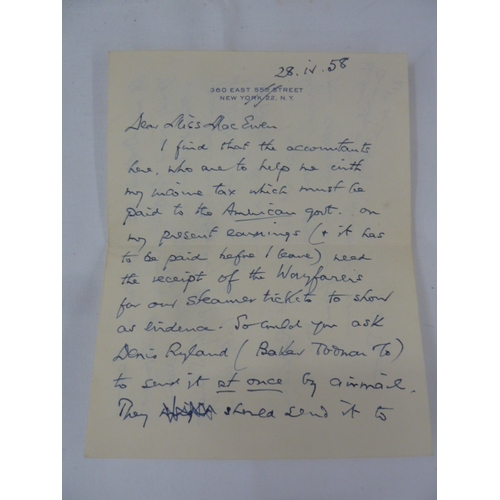 28.iv.58
360 EAST 55th STREET
NEW YORK 22, N.Y.
Dear Miss MacEwen
I find that the accountants
here, who are to help me with
my income tax which must be
paid to the American govt. on
my present earnings (+ it has
to be paid before I leave) need
the receipt of the Wayfarers
for our steamer tickets to show
as evidence. So could you ask
Denis Ryland (Baker
to send it at once by airmail.
They should send it to